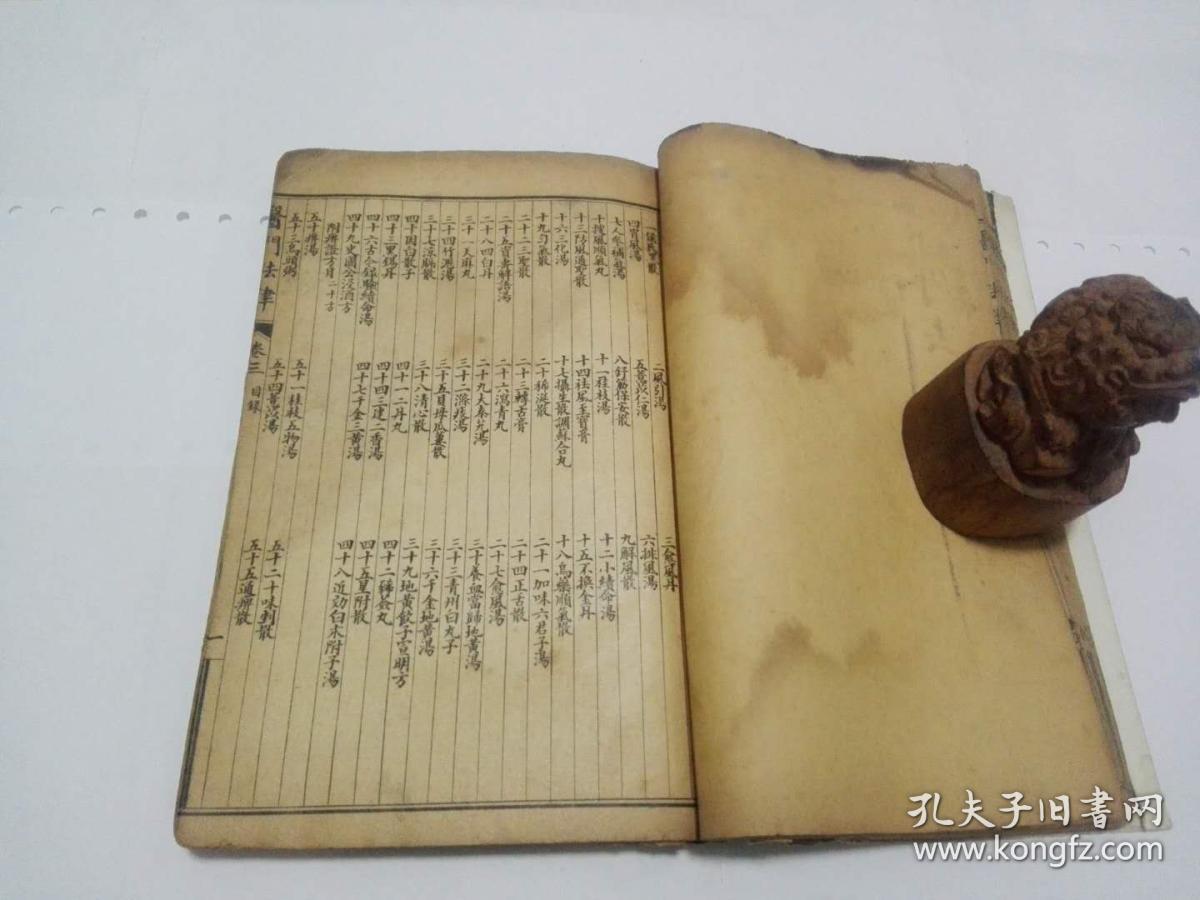 一侯氏黑散 二風引湯 三愈風丹
四寶風湯 五薏苡仁湯 六排風湯
七人參補氣湯 八舒筋保安散 九解風散
十搜風順氣丸 十一桂枝湯 十二小續命湯
十三防風通聖散 十四祛風至寶膏 十五不換金丹
十六三化湯 十七攝生散調蘇合丸 十八烏藥順氣散
十九勻氣散 二十稀涎散 二十一加味六君子湯
二十二三聖散 二十三轉舌膏 二十四正舌散
二十五資生解語湯 二十六瀉青丸 二十七愈風湯
二十八四白丹 二十九大秦艽湯 三十養血當歸地黃湯
三十一天麻丸 三十二滌痰湯 三十三青州白丸子
三十四竹瀝湯 三十五貝母瓜蔞散 三十六千金地黃湯
三十七涼膈散 三十八清心散 三十九地黃飲子宣明方
四十因白散子 四十一二丹丸 四十二豨薟丸
四十三黑錫丹 四十四三建二香湯 四十五星附散
四十六古今錄驗續命湯 四十七千金三黃湯 四十八近效白术附子湯
四十九史國公浸酒方
附痹證方目二十方
五十痹湯 五十一桂枝五物湯 五十二十味剉散
五十三烏頭粥 五十四薏苡湯 五十五通痹散
醫門法律 卷三 目錄 一
孔夫子旧書网
www.kongfz.com